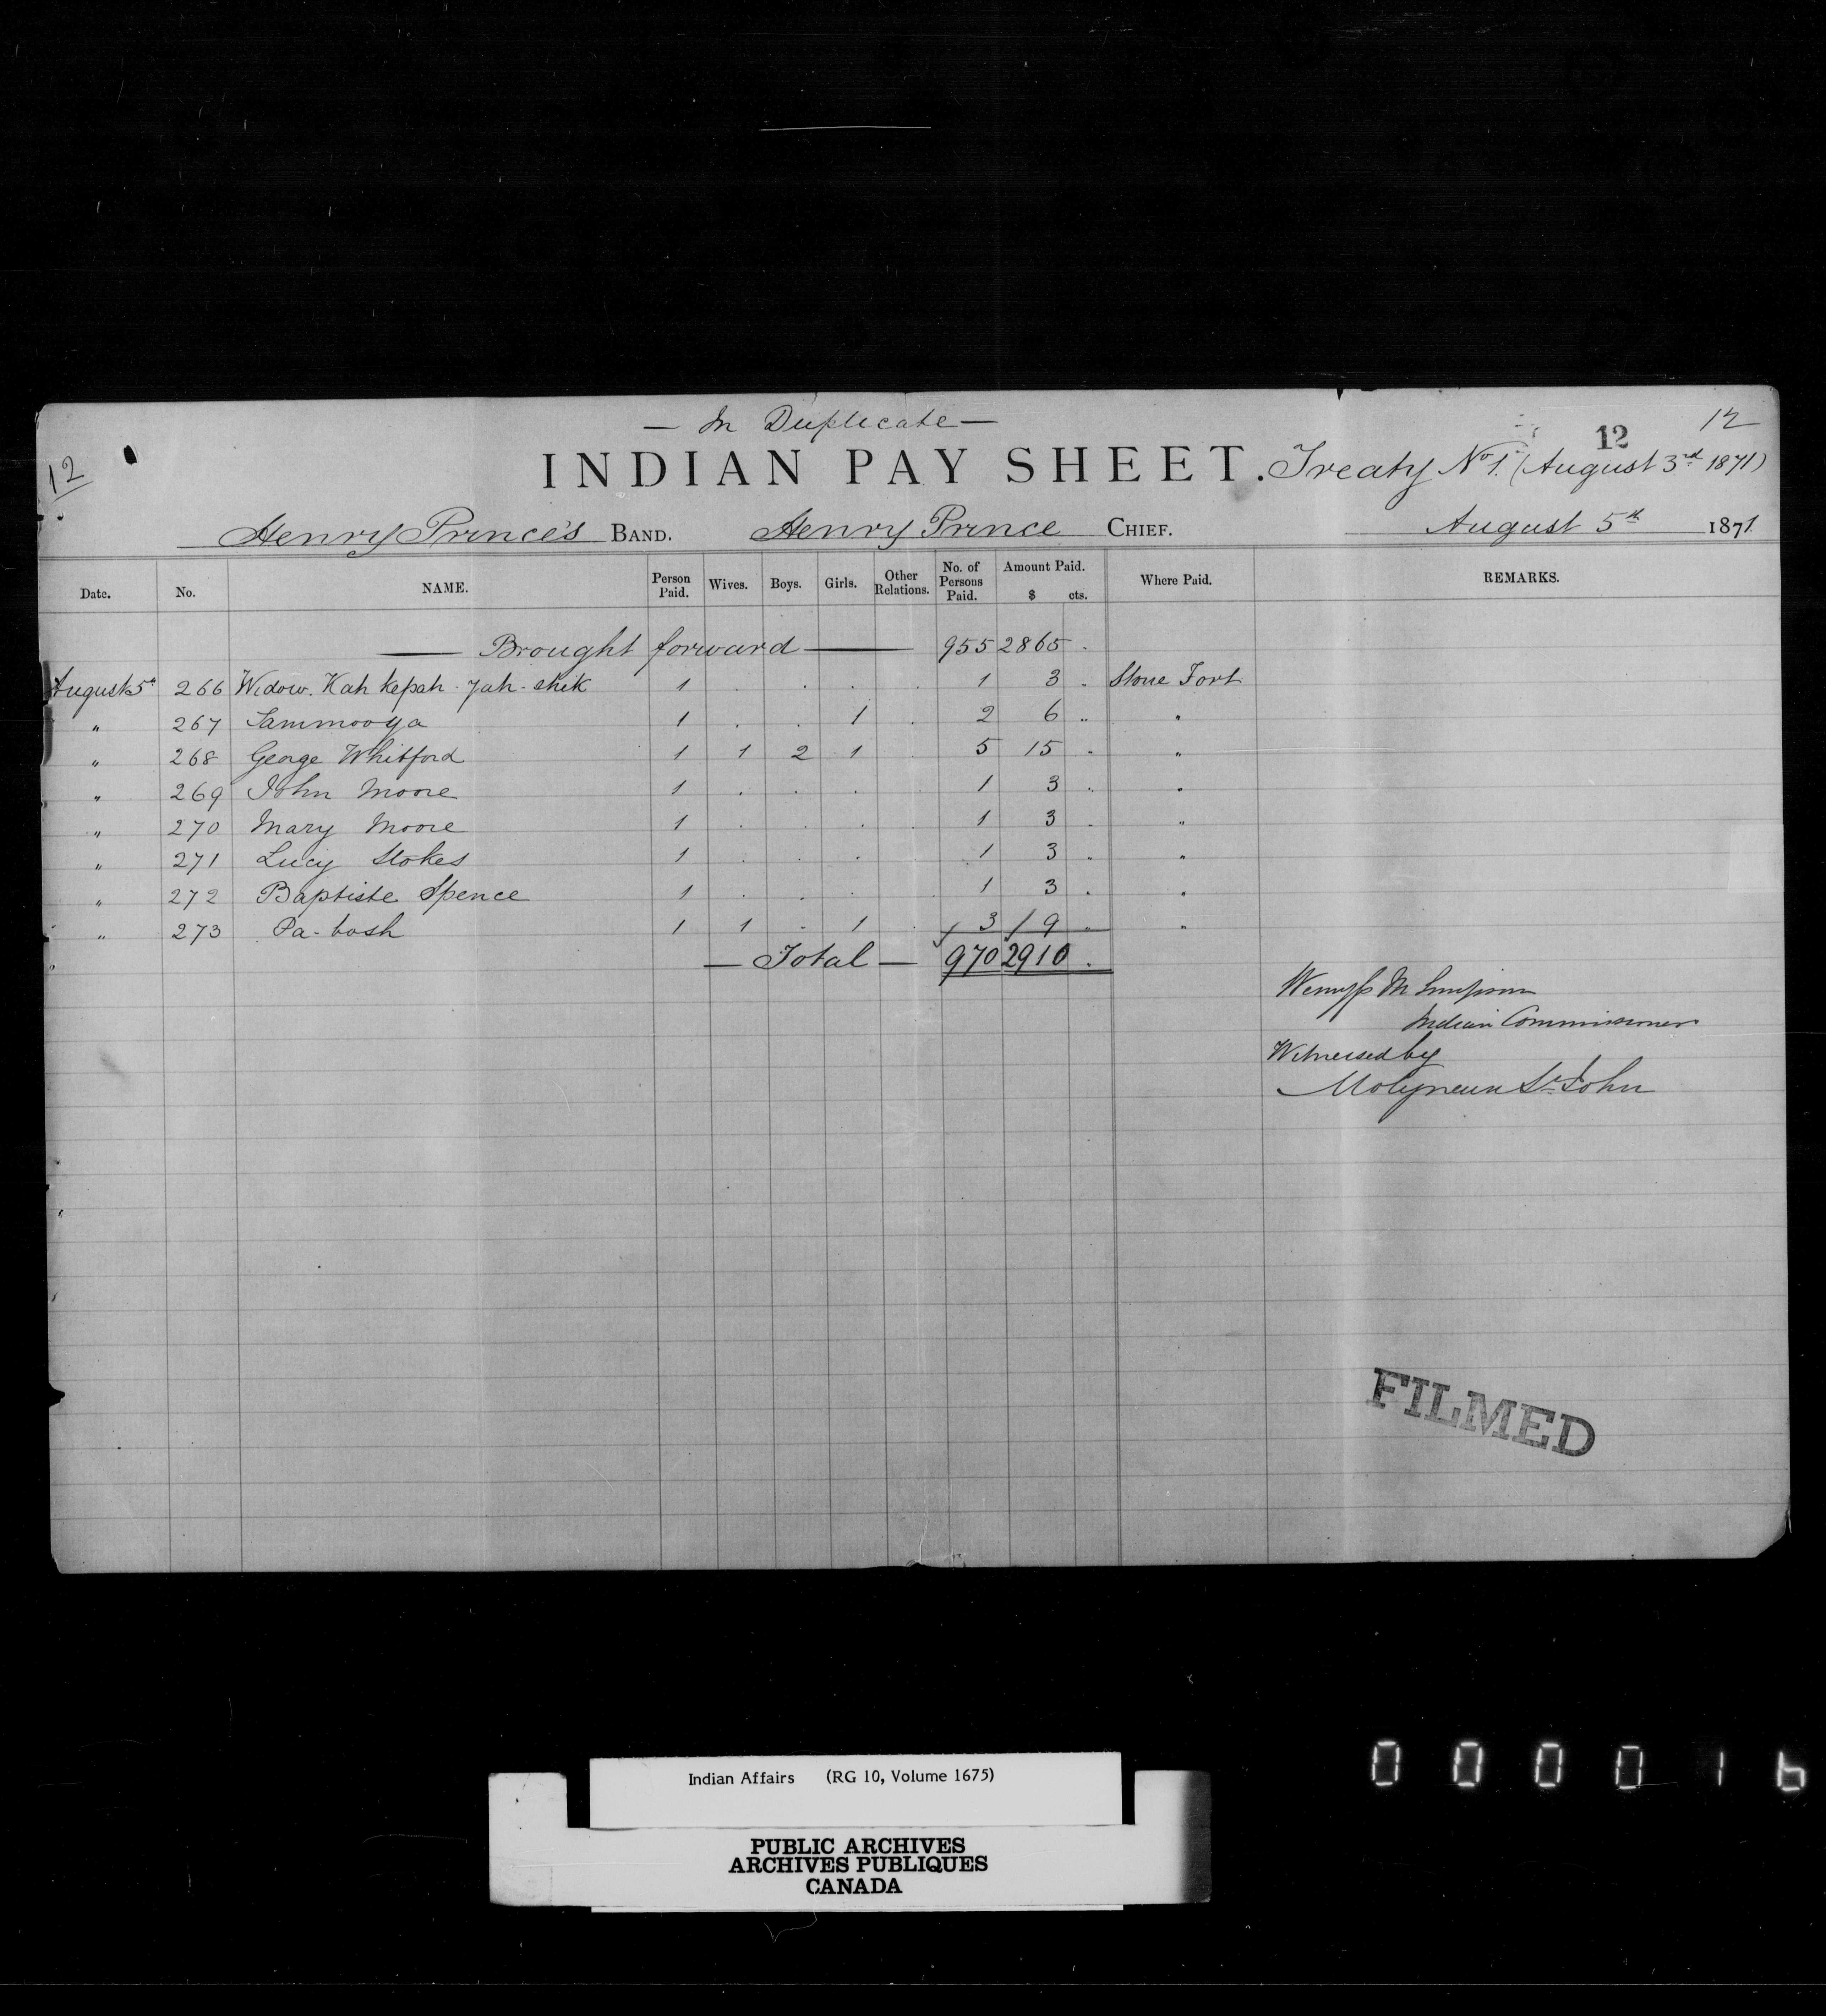 — In Duplicate —
12
12
12
INDIAN PAY SHEET. Treaty No 1. (August 3rd 1871)
Henry Prince's BAND. Henry Prince CHIEF. August 5th 1871
Date. No. NAME. Person Paid. Wives. Boys. Girls. Other Relations. No. of Persons Paid. Amount Paid. $ cts. Where Paid. REMARKS.
— Brought forward — 955 2865 .
August 5th 266 Widow. Kah kepah - yah - shik 1 . . . . 1 3 . Stone Fort
" 267 Sammooya 1 . . 1 . 2 6 " "
" 268 George Whitford 1 1 2 1 . 5 15 " "
" 269 John Moore 1 . . . 1 3 " "
" 270 Mary Moore 1 . . . . 1 3 " "
" 271 Lucy Stokes 1 . . . 1 3 " "
" 272 Baptiste Spence 1 . . . . 1 3 . "
" 273 Pa-bash 1 1 . 1 . 3 9 " "
— Total — 970 2910 .
Wemyss M Simpson
Indian Commissioner
Witnessed by
Molyneux St. John
FILMED
Indian Affairs (RG 10, Volume 1675)
PUBLIC ARCHIVES
ARCHIVES PUBLIQUES
CANADA
0 0 0 0 1 6